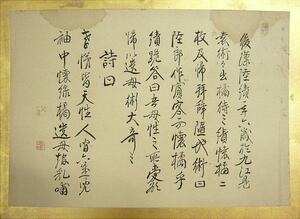 後漢陸績年六歳於九江見
袁術々出橘待之績懷橘二
枚及帰拜辞墮地術曰
陸郎作賓客而懷橘乎
績跪答曰吾母性之所愛欲
帰以遺母術大奇之
詩曰
孝悌皆天性人間六歳児
袖中懷緑橘遺母報乳哺